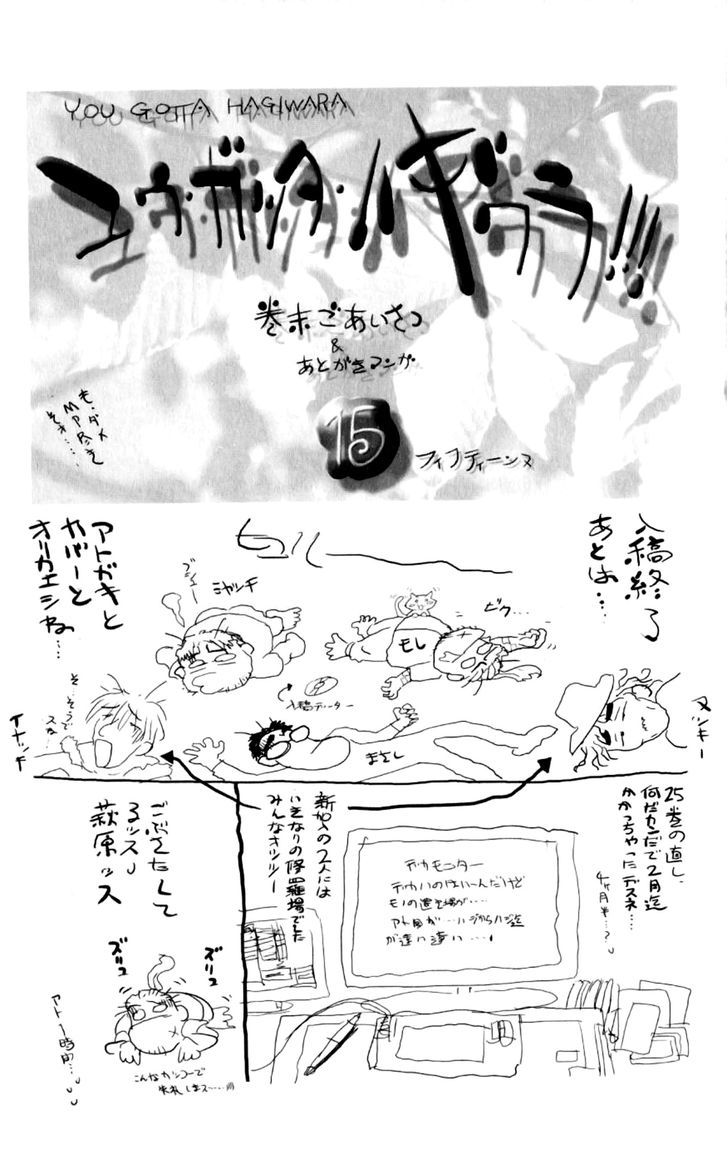 YOU GOTTA HAGIWARA
ユウ・ガッタ・ハギワラ!!!
巻末ごあいさつ
&
あとがきマンガ
15
フィフティーンヌ
も・ダメ
入稿終了
あとは…
ビク…
もし
ヒュルー
ブシュー
ミヤッチ
入稿データー
まさし
ヌッキー
アトガキと
カバーと
オリカエシャね…
そ…そうで
スね…
イナッチ
25巻の直し、
何だカンだで2月迄
かかっちゃったデスネ…
4ヶ月半…?
新加入の2人には
いきなりの修羅場でした
みんなオツシー
デカモニター
デカいのはいーんだけど
モノの置き場が…
アト目が…ハジからハジ迄
が遠い遠い…
ごぶさたして
るッスし
萩原ッス
ズリュ
ズリュ
こんなカッコーで
失礼しまス……
アト1時間…